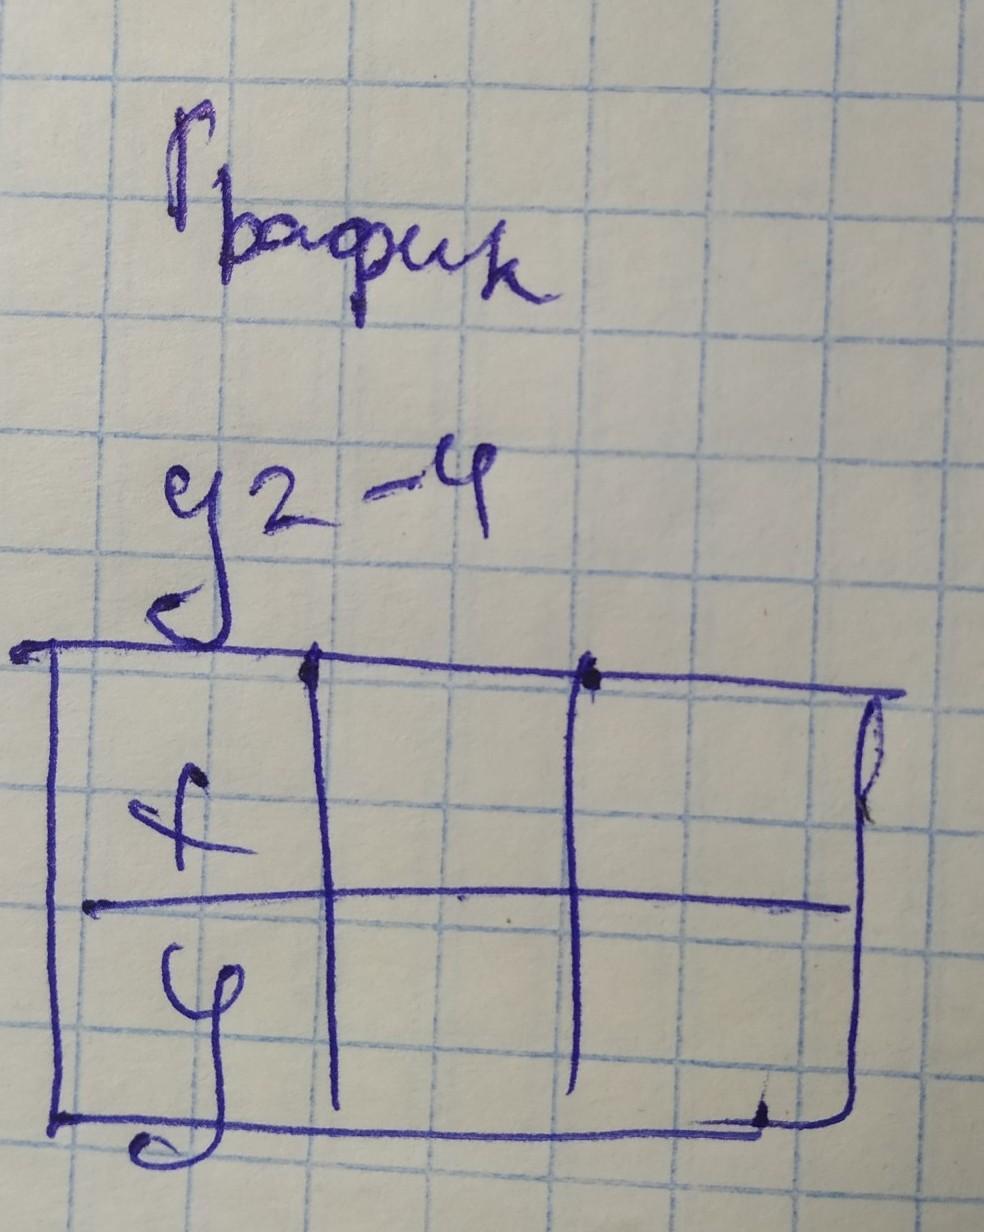 График
y = -4
x
y